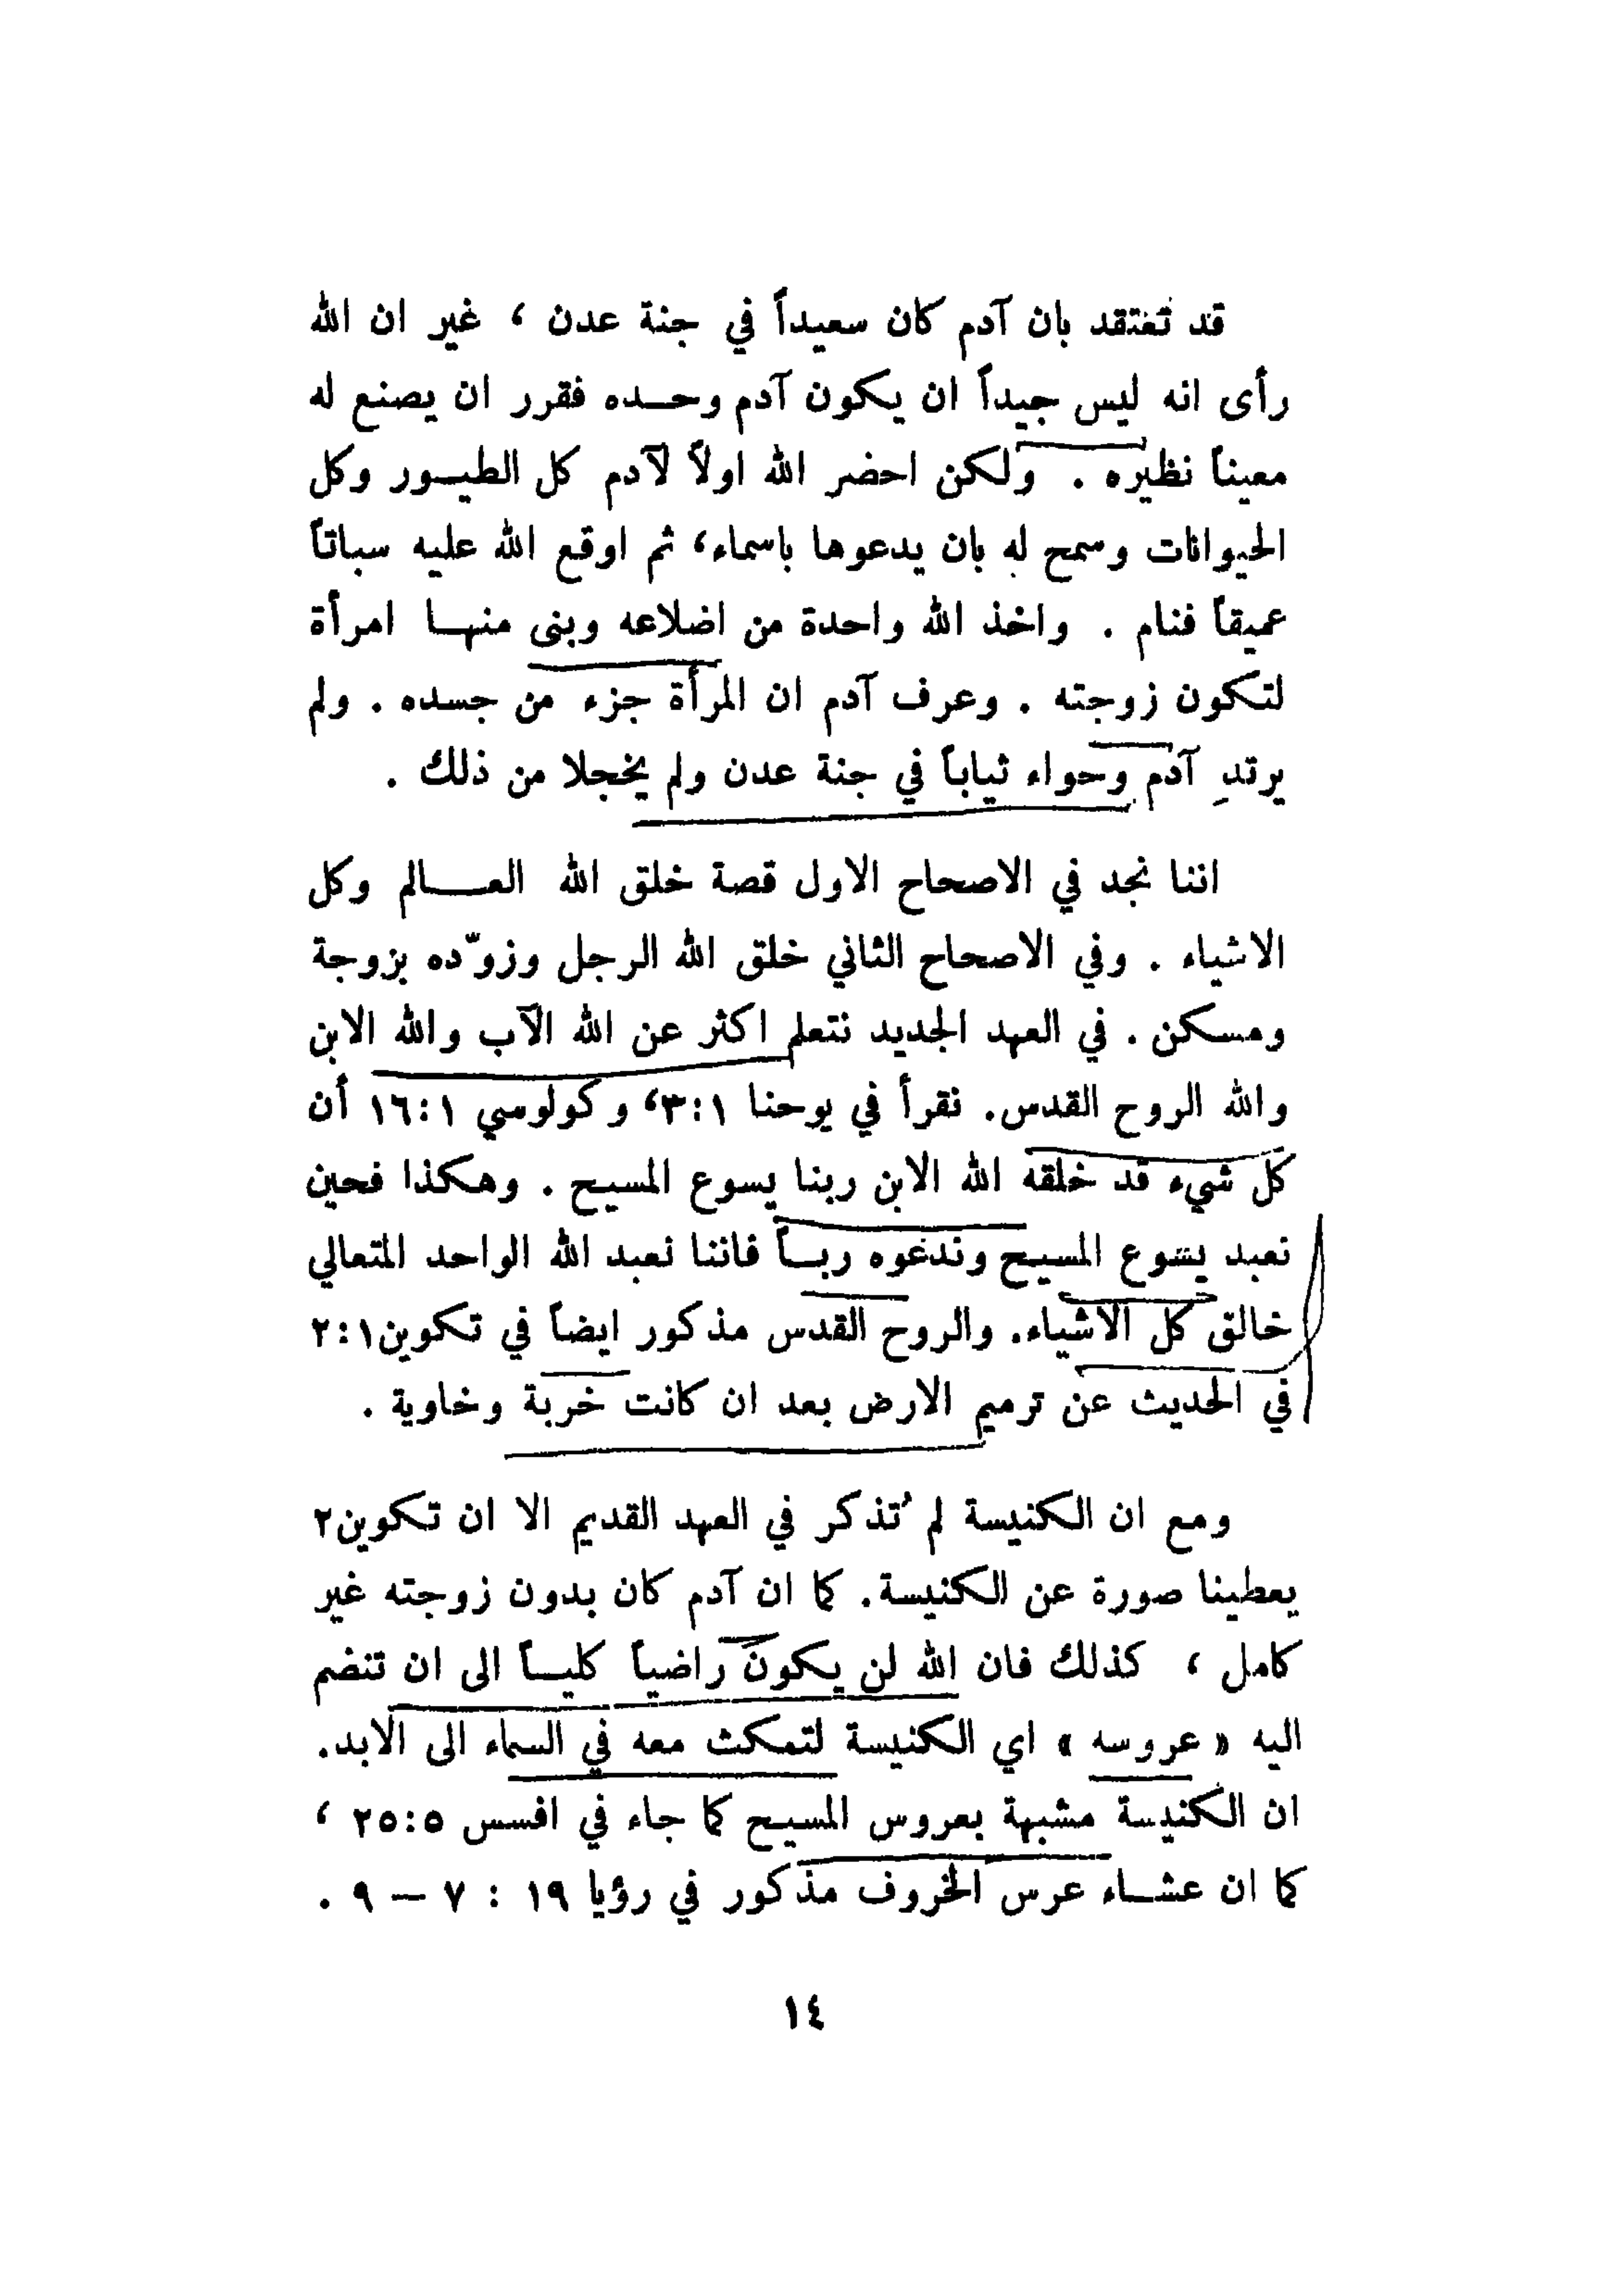 قد تعتقد بان آدم كان سعيداً في جنة عدن ، غير ان الله
رأى انه ليس جيداً ان يكون آدم وحـــده فقرر ان يصنع له
معيناً نظيره . ولكن احضر الله اولاً لآدم كل الطيـور وكل
الحيوانات وسمح له بان يدعوها باسماء، ثم اوقع الله عليه سباتاً
عميقاً فنام . واخذ الله واحدة من اضلاعه وبنى منهـا امرأة
لتكون زوجته . وعرف آدم ان المرأة جزء من جسده . ولم
يرتدِ آدم وحواء ثياباً في جنة عدن ولم يخجلا من ذلك .
اننا نجد في الاصحاح الاول قصة خلق الله العـــالم وكل
الاشياء . وفي الاصحاح الثاني خلق الله الرجل وزوّده بزوجة
ومسكن . في العهد الجديد نتعلم اكثر عن الله الآب والله الابن
والله الروح القدس. نقرأ في يوحنا ١:٣، وكولوسي ١:١٦ أن
كل شيء قد خلقه الله الابن ربنا يسوع المسيح . وهكذا فحين
نعبد يسوع المسيح وندعوه ربـاً فاننا نعبد الله الواحد المتعالي
خالق كل الاشياء. والروح القدس مذكور ايضاً في تكوين١:٢
في الحديث عن ترميم الارض بعد ان كانت خربة وخاوية .
ومع ان الكنيسة لم تُذكر في العهد القديم الا ان تكوين٢
يعطينا صورة عن الكنيسة. كما ان آدم كان بدون زوجته غير
كامل ، كذلك فان الله لن يكون راضياً كليـاً الى ان تنضم
اليه « عروسه » اي الكنيسة لتمكث معه في السماء الى الابد.
ان الكنيسة مشبهة بعروس المسيح كما جاء في افسس ٥:٢٥ ،
كما ان عشـاء عرس الخروف مذكور في رؤيا ١٩ : ٧ – ٩ .
١٤